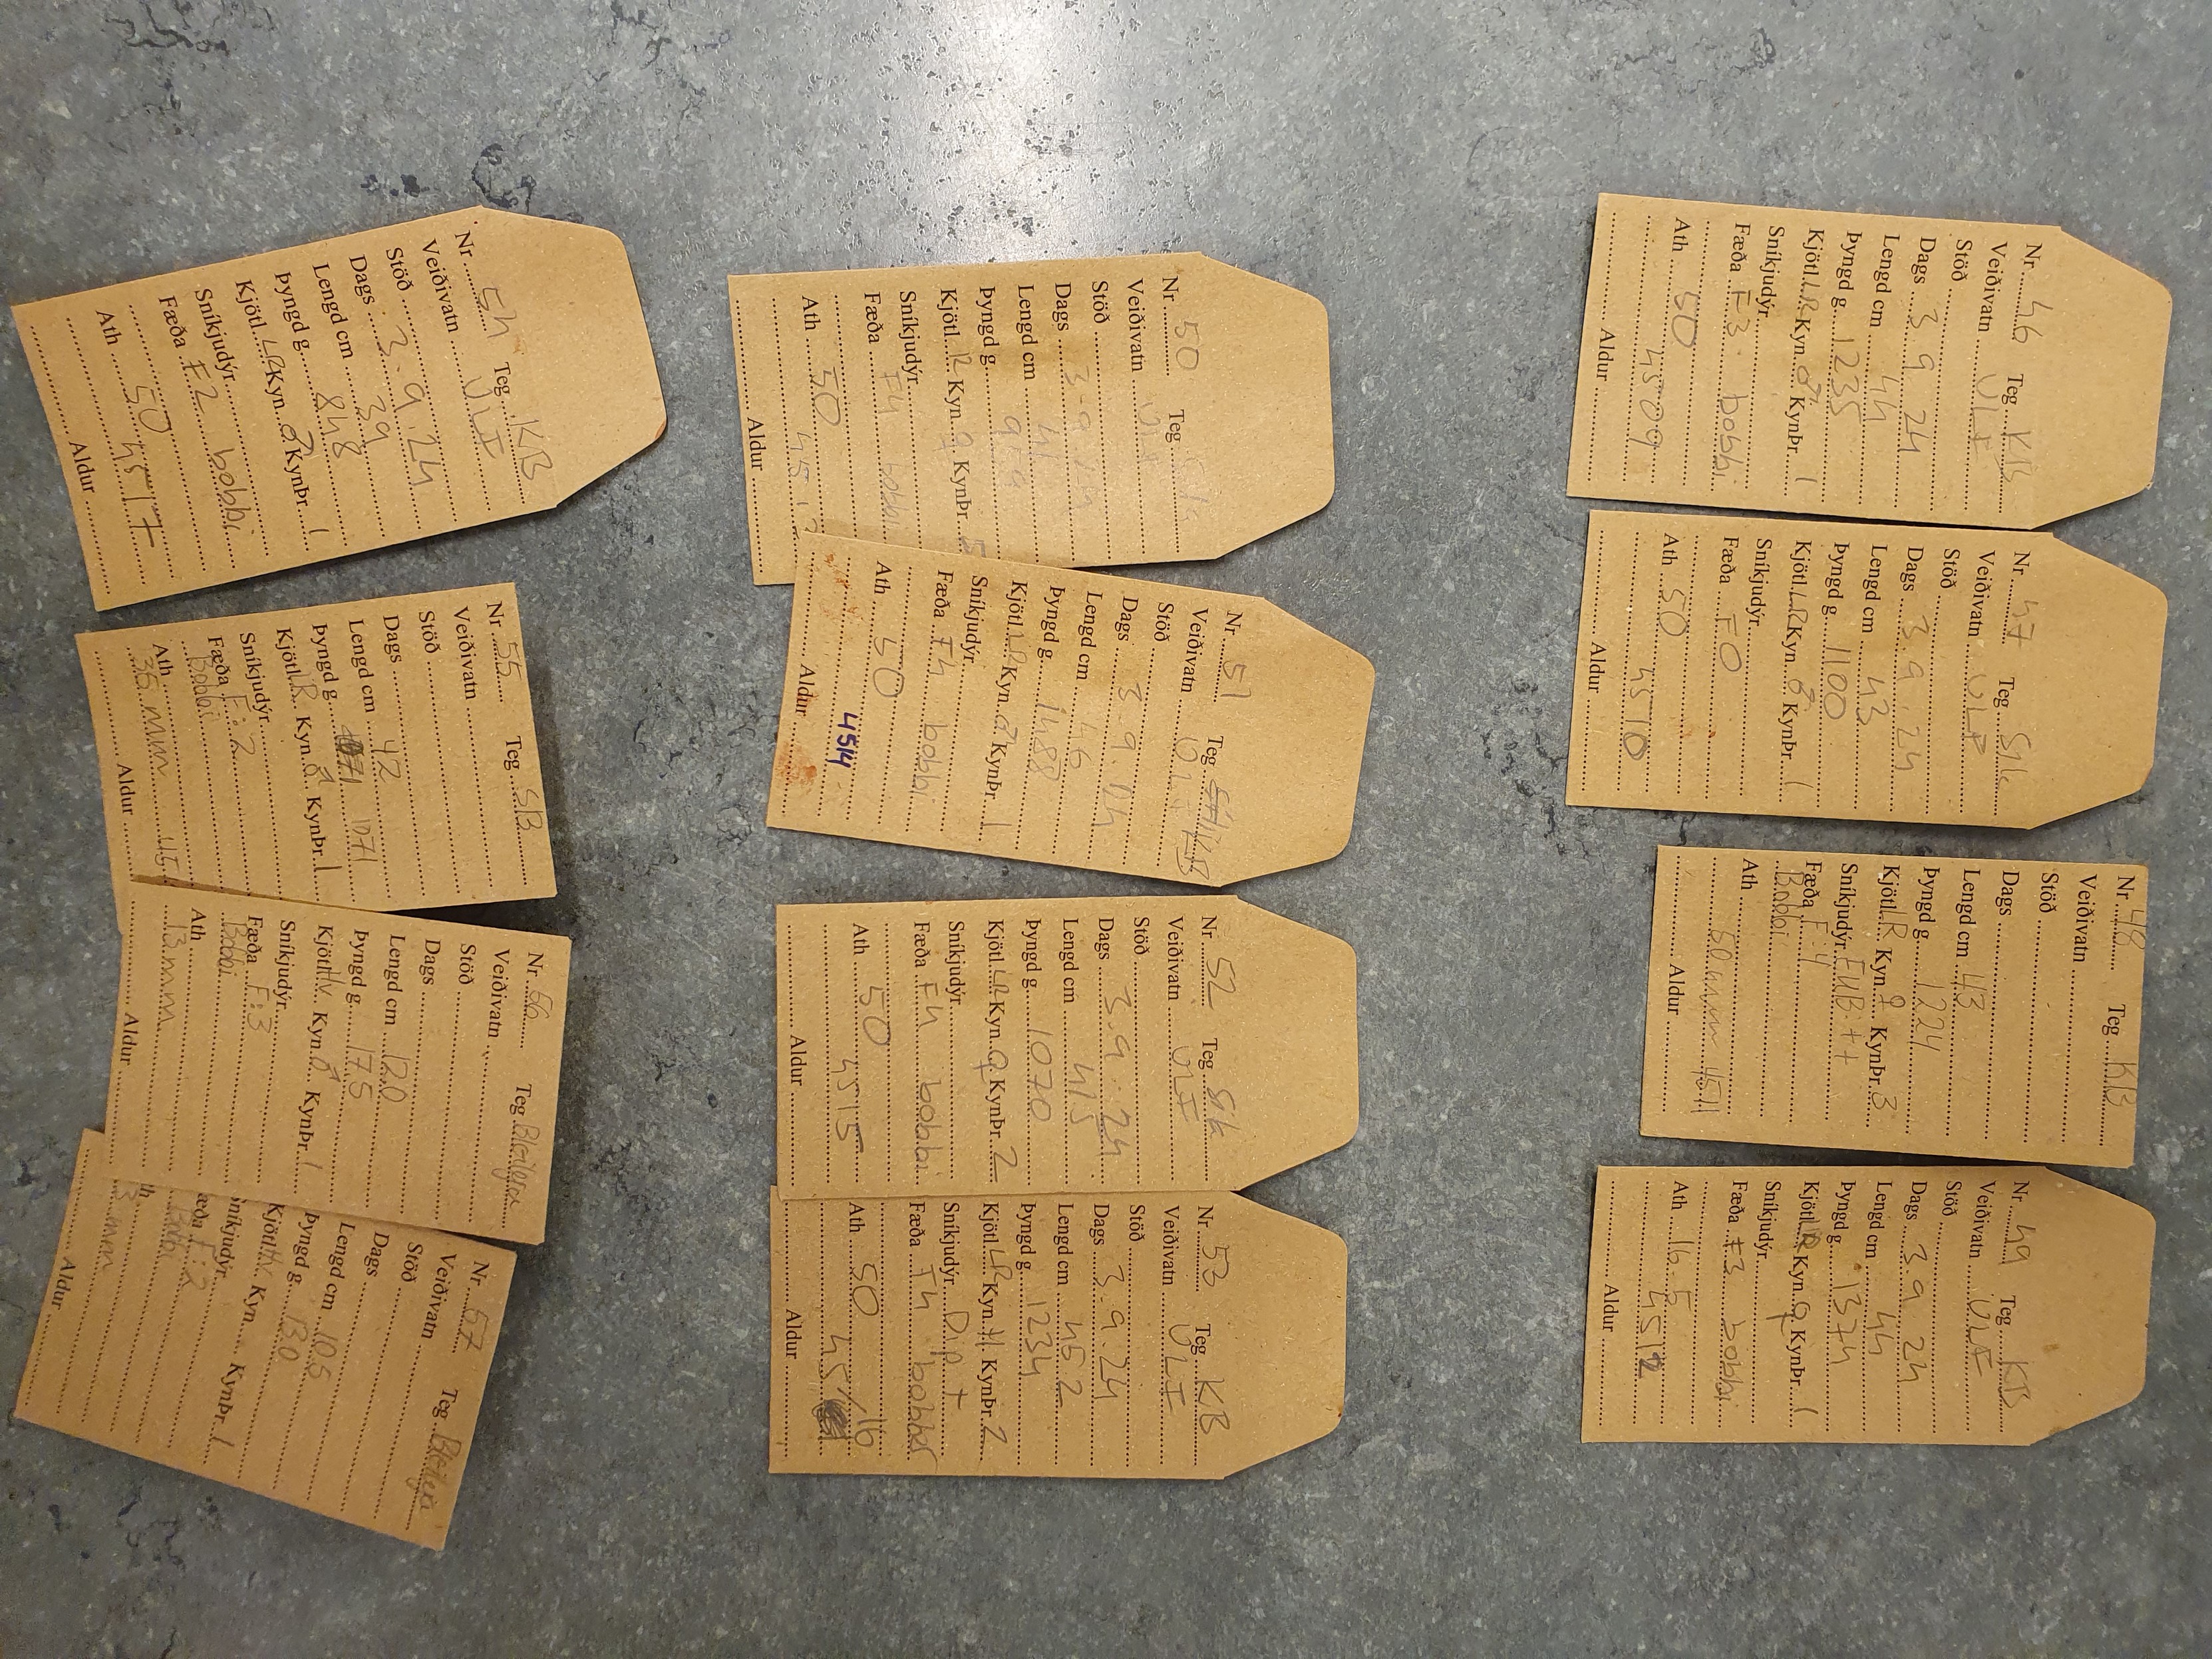 Nr 46 Teg KB
Veiðivatn ÚLF
Stöð
Dags 3 9 24
Lengd cm 44
Þyngd g. 1235
Kjötl. LR Kyn ♂ KynÞr. 1
Sníkjudýr
Fæða F3 bobbi
Ath 50
4509
Aldur
Nr 47 Teg Slk
Veiðivatn ÚLF
Stöð
Dags 3.9.24
Lengd cm 43
Þyngd g. 1100
Kjötl. LR Kyn ♂ KynÞr. 1
Sníkjudýr
Fæða F0
Ath 50
4510
Aldur
Nr 48 Teg KB
Veiðivatn
Stöð
Dags
Lengd cm 43
Þyngd g. 1224
Kjötl. LR Kyn ♀ KynÞr. 3
Sníkjudýr EUB: ++
Fæða F:4
Bobbi
Ath
50 mm 4511
Aldur
Nr 49 Teg KB
Veiðivatn ÚLF
Stöð
Dags 3 9 24
Lengd cm 44
Þyngd g. 1374
Kjötl. LR Kyn ♀ KynÞr. 1
Sníkjudýr
Fæða F3 bobbi
Ath 16.5
4512
Aldur
Nr 50 Teg
Veiðivatn
Stöð
Dags 3.9.24
Lengd cm 41
Þyngd g. 959
Kjötl. R Kyn ♀ KynÞr. 5
Sníkjudýr
Fæða F4 bobbi
Ath 50
4513
Aldur
Nr 51 Teg KB
Veiðivatn ÚLF
Stöð
Dags 3.9.24
Lengd cm 46
Þyngd g. 1488
Kjötl. LR Kyn ♂ KynÞr. 1
Sníkjudýr
Fæða F4 bobbi
Ath 50
4514
Aldur
Nr 52 Teg Slk
Veiðivatn ÚLF
Stöð
Dags 3.9.24
Lengd cm 41,5
Þyngd g. 1070
Kjötl. LR Kyn ♀ KynÞr. 2
Sníkjudýr
Fæða F4 bobbi
Ath 50
4515
Aldur
Nr 53 Teg KB
Veiðivatn ÚLF
Stöð
Dags 3.9.24
Lengd cm 45,2
Þyngd g. 1234
Kjötl. LR Kyn KynÞr. 2
Sníkjudýr D.p +
Fæða F4 bobbar
Ath 50
4516
Aldur
Nr 54 Teg KB
Veiðivatn ÚLF
Stöð
Dags 3.9.24
Lengd cm 39
Þyngd g. 848
Kjötl. LR Kyn ♂ KynÞr. 1
Sníkjudýr
Fæða F2 bobbi
Ath 50
4517
Aldur
Nr 55 Teg SB
Veiðivatn
Stöð
Dags
Lengd cm 42
Þyngd g. 1071
Kjötl. LR Kyn ♂ KynÞr. 1
Sníkjudýr
Fæða F:2
Bobbi
Ath
35 mm 45
Aldur
Nr 56 Teg Bleikja
Veiðivatn
Stöð
Dags
Lengd cm 12.0
Þyngd g. 17.5
Kjötl. Hv Kyn ♂ KynÞr. 1
Sníkjudýr
Fæða F:3
Bobbi
Ath
13 mm
Aldur
Nr 57 Teg Bleikja
Veiðivatn
Stöð
Dags
Lengd cm 10.5
Þyngd g. 13.0
Kjötl. Hv Kyn KynÞr. 1
Sníkjudýr
Fæða F:2
Bobbi
Ath
mm
Aldur